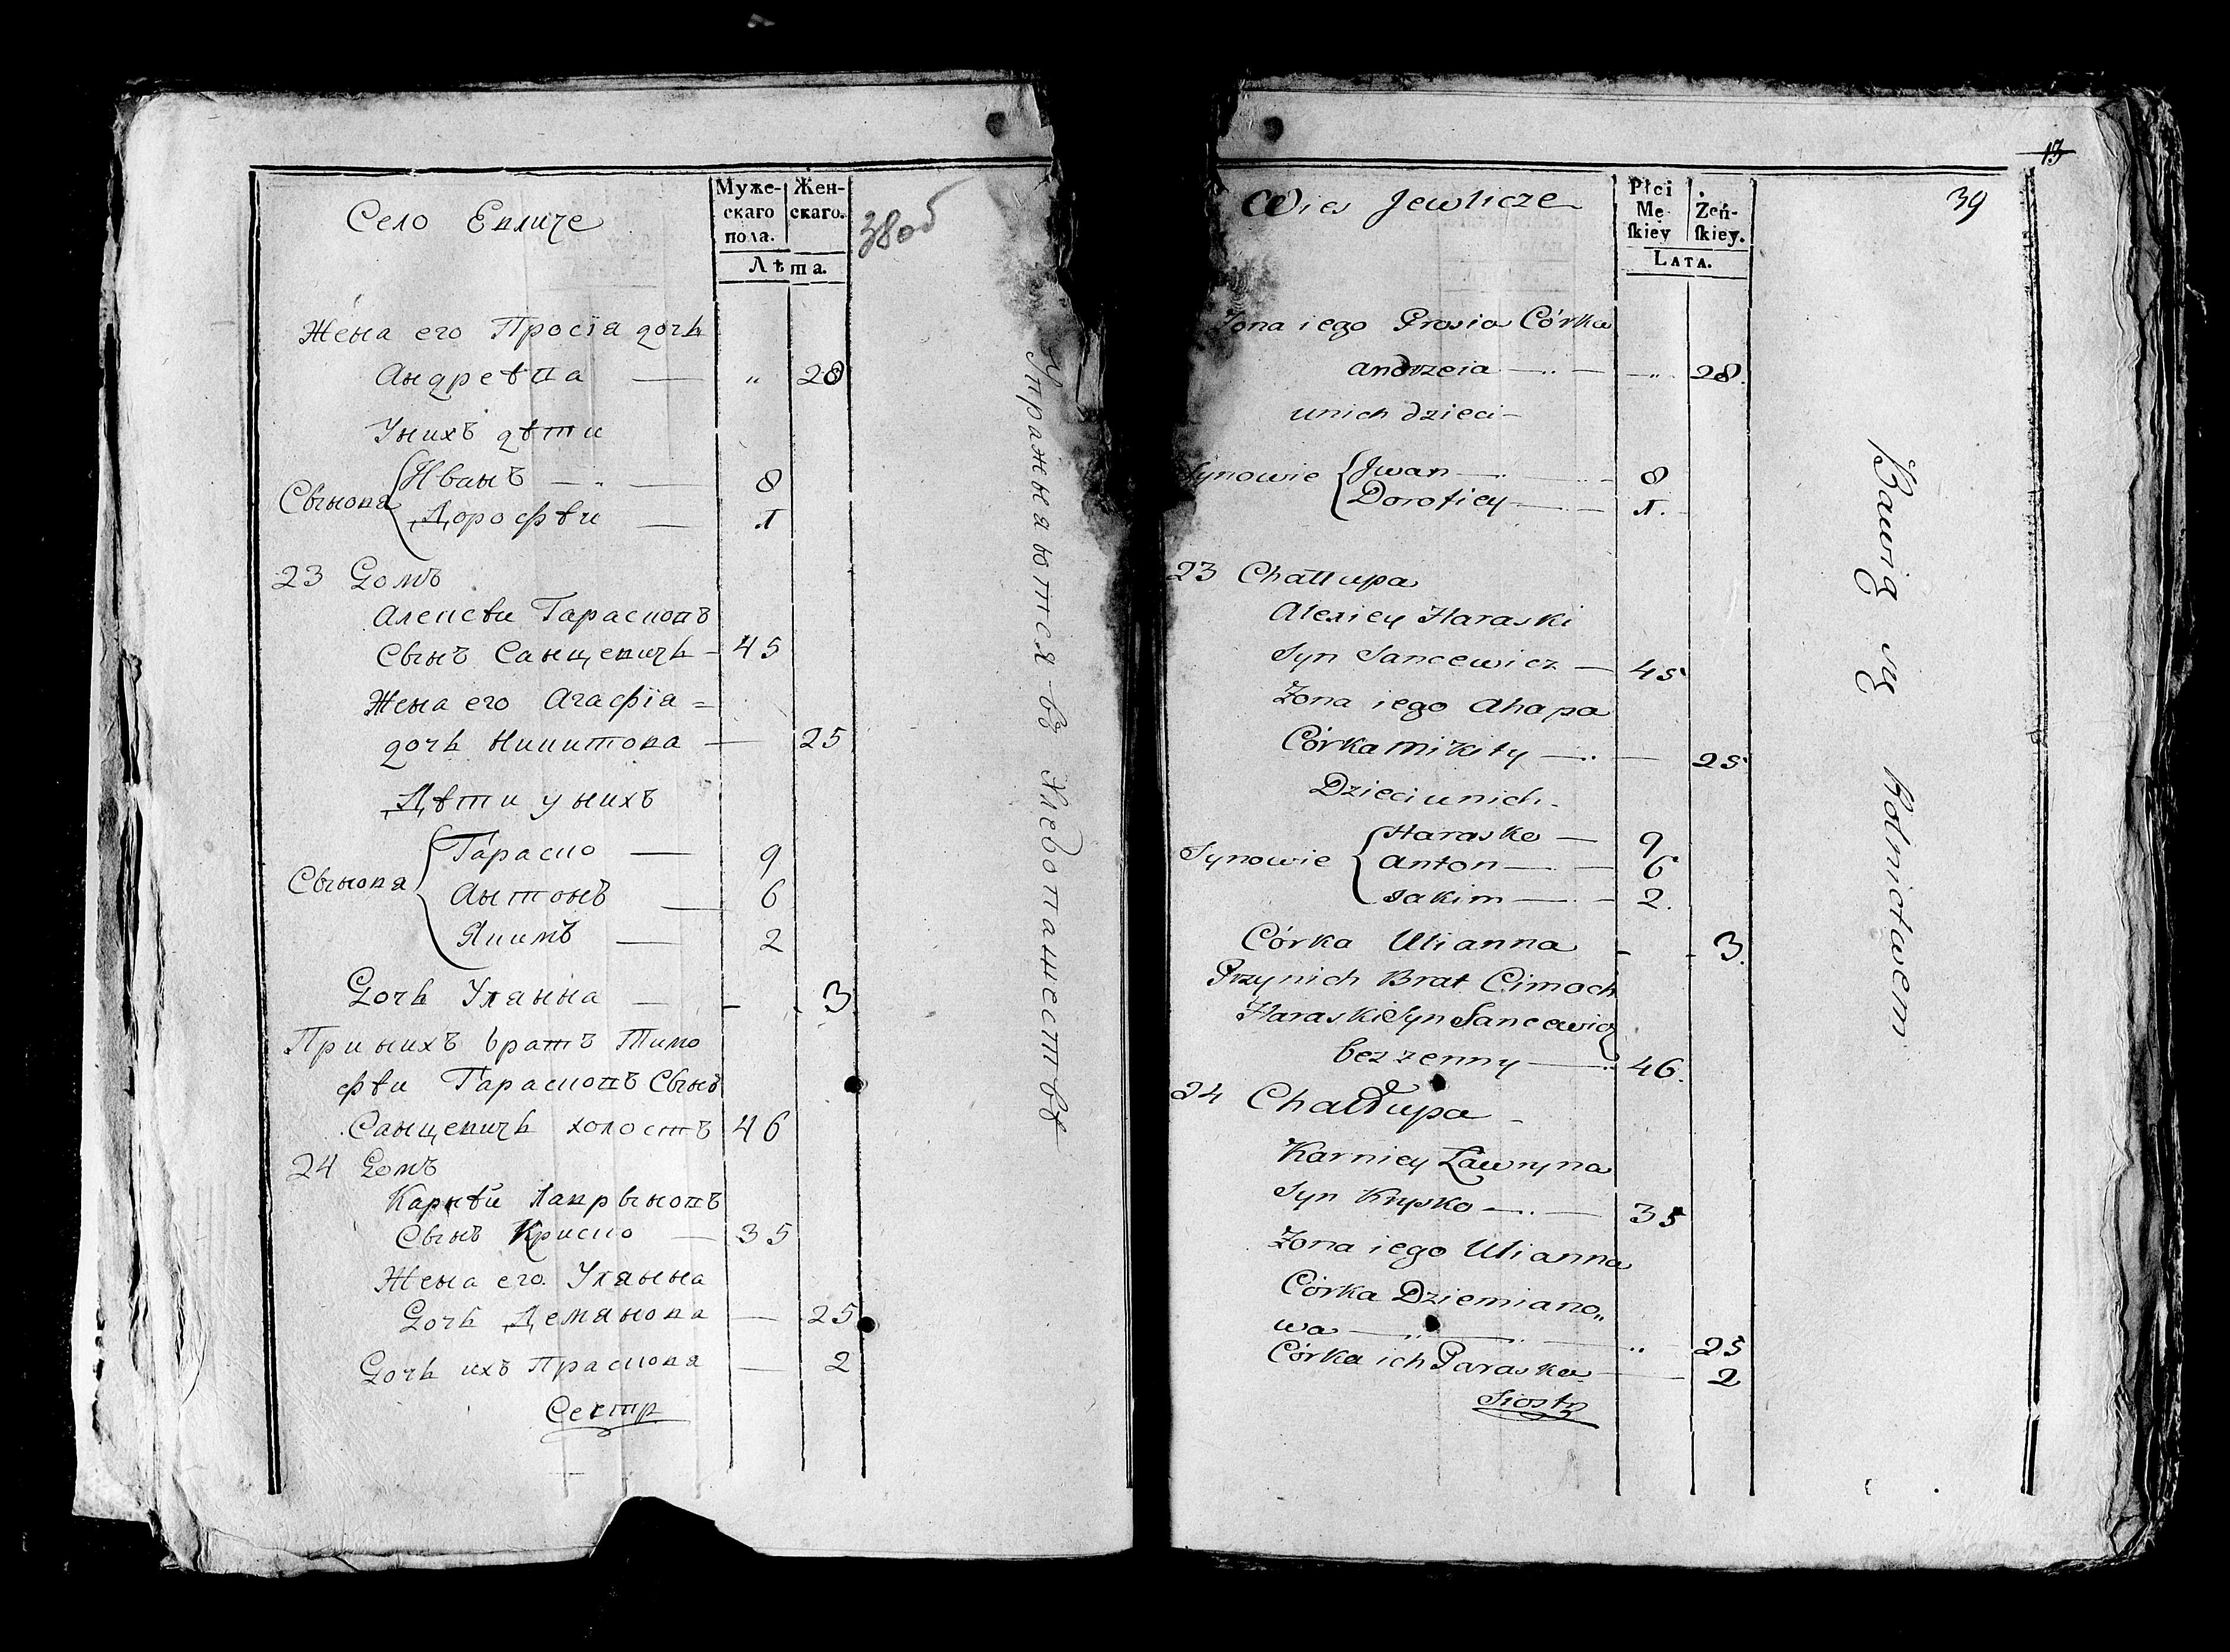 Муже-
скаго
пола.
Жен-
скаго.
Лѣта.
38об
Село Евличе
Жена его Просїя дочь
Андреѣва — " 28
У нихъ дѣти
Сыновя
Иванъ — 8
Дорофѣи — 1
23 Домъ
Алексѣи Тарасковъ
Сынъ Санцевичь - 45
Жена его Агафїя =
дочь Никитова — 25
Дѣти у нихъ
Сыновя
Тараско — 9
Антонъ — 6
Якимъ — 2
Дочь Улянна — - 3
При нихъ братъ Тимо
фѣи Тарасковъ Сынъ
Санцевичь холостъ 46
24 Домъ
Карнѣй Лаврыновъ
Сынъ Криско — 35
Жена его Улянна
Дочь Демянова — 25
Дочь ихъ Прасковя — 2
Сестр
Упражняются въ Хлебопашествѣ
13
39
Wies Jewlicze
Płci
Mę-
skiey
Żeń-
skiey.
LATA.
Żona iego Prosia Córka
andrzeia — " 28.
unich dzieci -
Synowie
Jwan — 8
Dorofiey — 1.
23 Chałłupa
Alexiey Haraski
Syn Sancewicz — 45
Żona iego Ahapa
Córka Mikity — 25
Dzieci unich -
Synowie
Harasko — 9
Anton — 6
Jakim — 2.
Córka Ulianna - - 3.
Przynich Brat Cimoch
Haraski Syn Sancewicz
bez zenny — 46.
24 Chałłupa -
Karniey Ławryna
Syn Krysko — 35
Żona iego Ulianna
Córka Dziemiano„
wa — " 25
Córka ich Paraska — 2
Siostr
Bawią się Rolnictwem